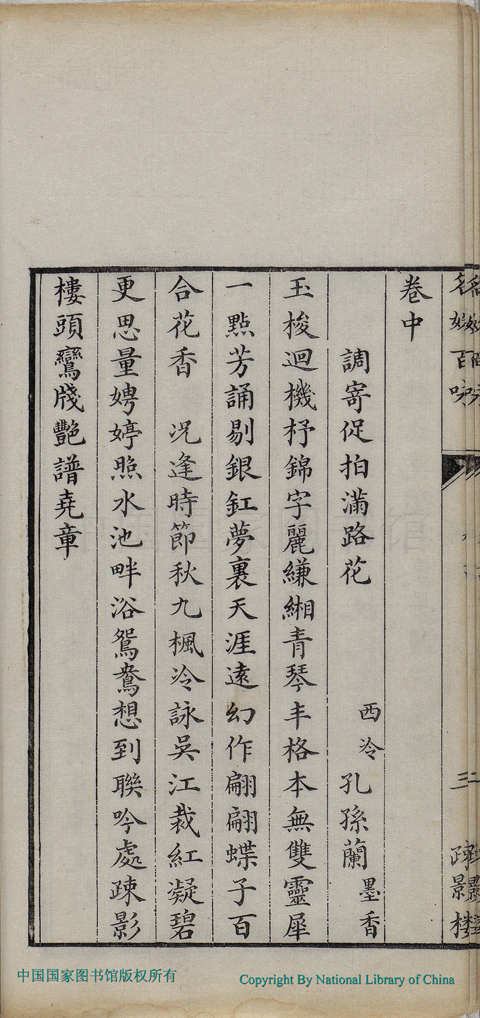 卷中
調寄促拍滿路花
西泠孔孫蘭墨香
玉梭迴機杼錦字麗縑緗青琴丰格本無雙靈犀
一點芳誦剔銀釭夢裏天涯遠幻作翩翩蝶子百
合花香　況逢時節秋九楓冷詠吳江裁紅凝碧
更思量娉婷照水池畔浴鴛鴦想到聯吟處疎影
樓頭鸞牋豔譜堯章
名媛百咏
三
疎影樓
中国国家图书馆版权所有
Copyright By National Library of China